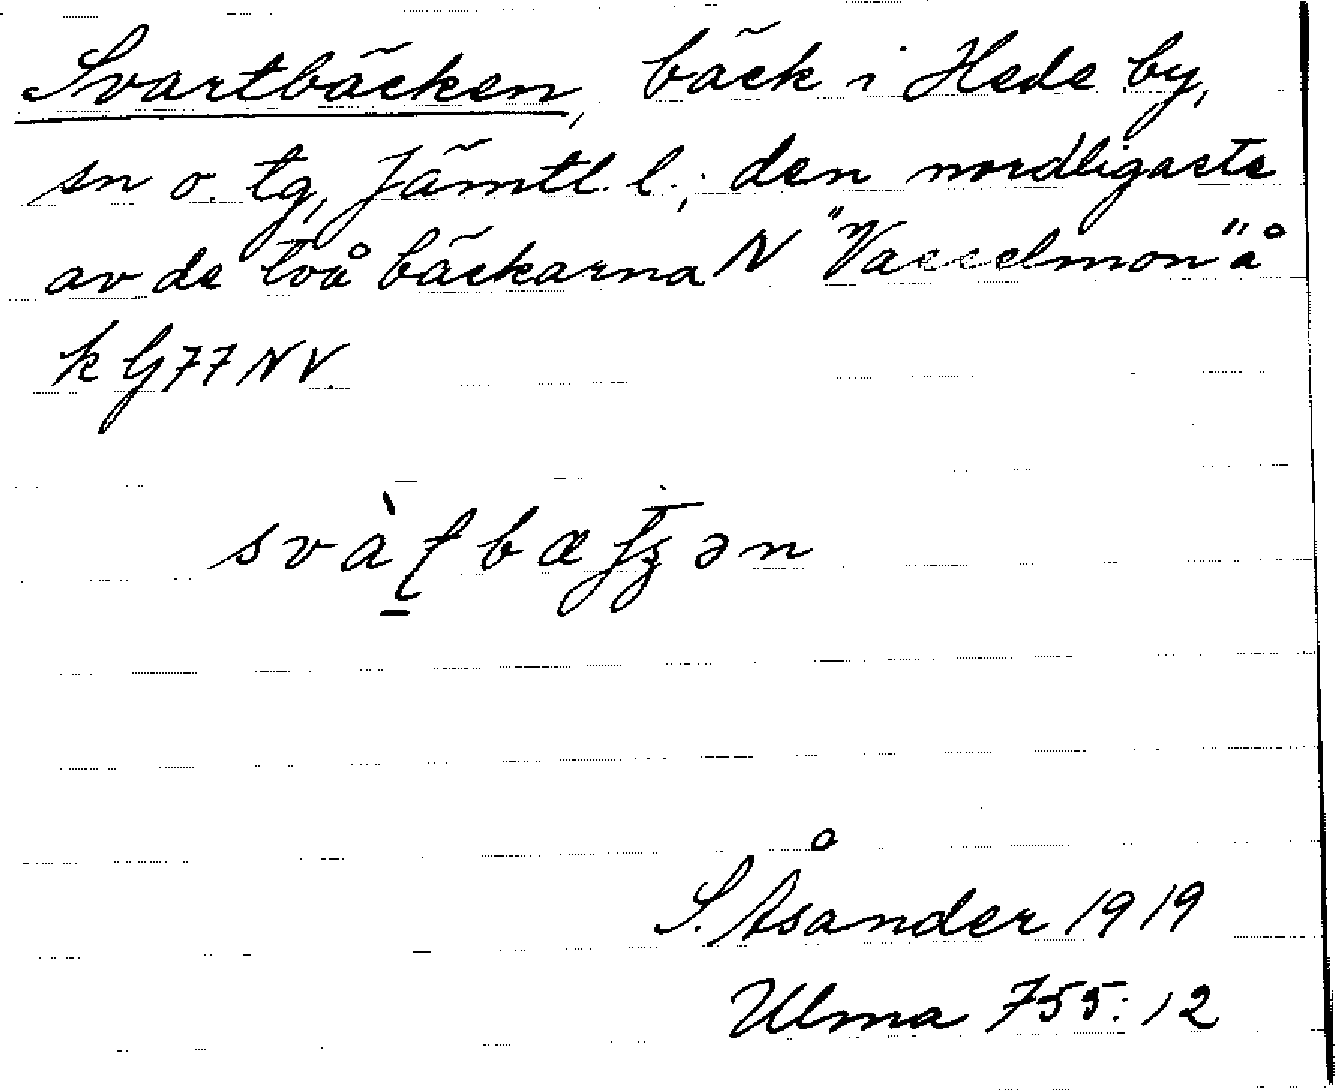 Svartbäcken, bäck i Hede by,
sn o. tg, Jämtl. l.; den nordligaste
av de två bäckarna N "Vasselmon" å
k G77NV.
svàƭbæʄʒən
S. Åsander 1919
Ulma 755:12